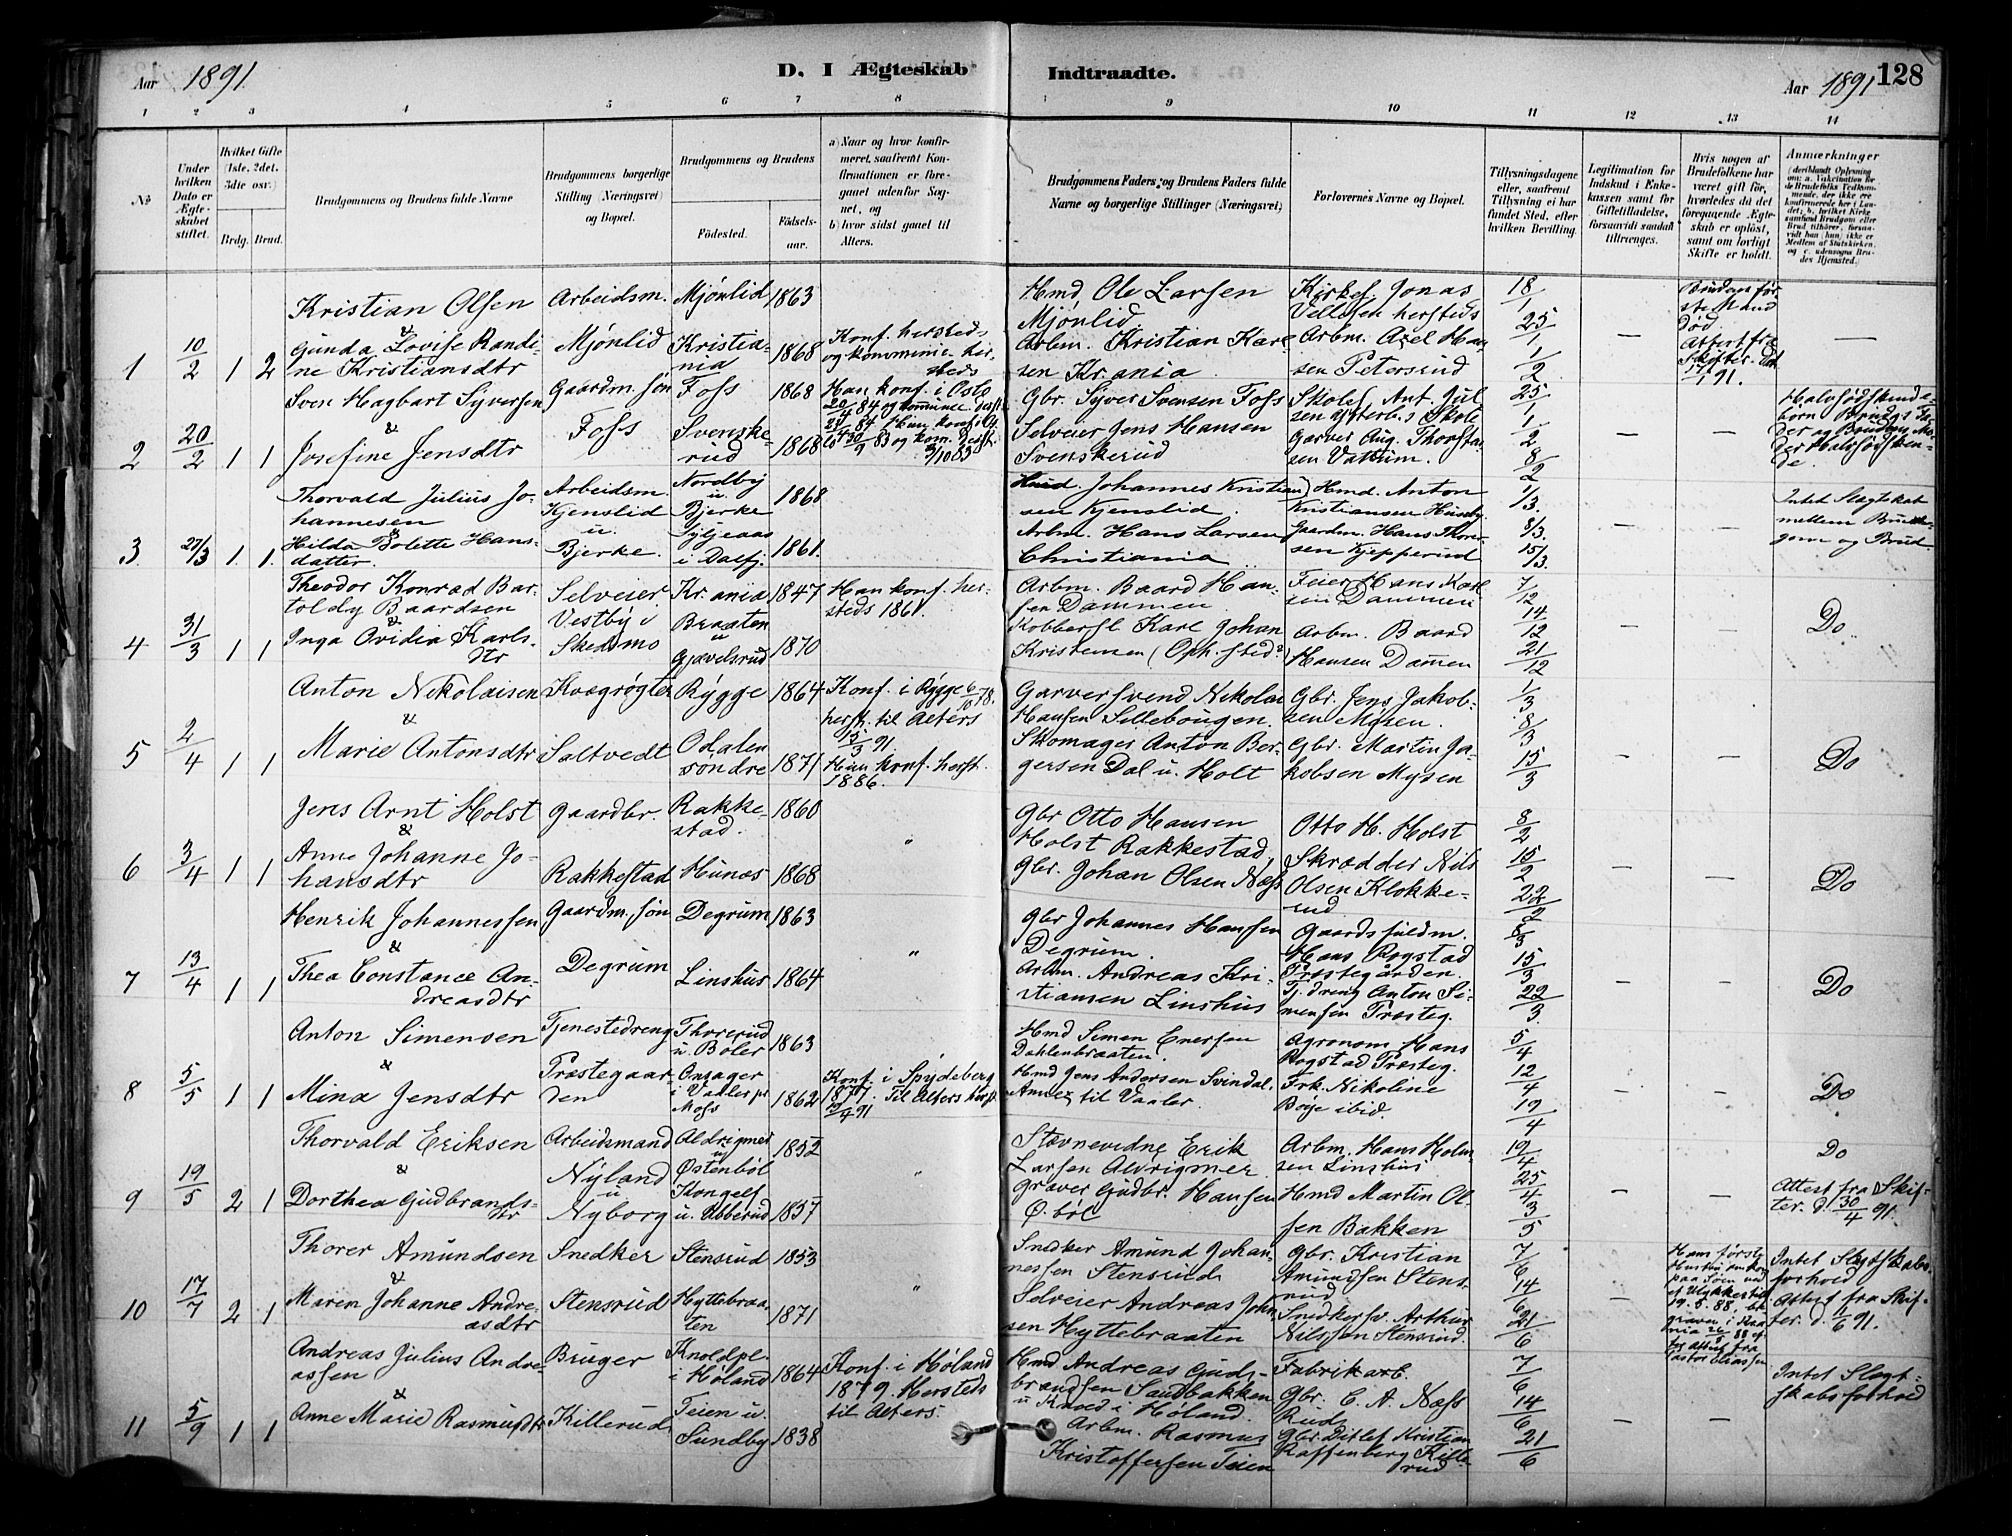 Aar 1891. D. I Ægteskab Indtraadte. Aar 1891 128
1 2 3 4 5 6 7 8 9 10 11 12 13 14
№
Under hvilken Dato er Ægteskabet stiftet.
Hvilket Gifte (1ste, 2det, 3dte osv.)
Brdg. Brud.
Brudgommens og Brudens fulde Navne
Brudgommens borgerlige Stilling (Næringsvei) og Bopæl.
Brudgommens og Brudens
Födested. Födsels-aar.
a) Naar og hvor konfirmeret, saafremt Konfirmationen er foregaaet udenfor Sognet, og
b) hvor sidst gaaet til Alters.
Brudgommens Faders og Brudens Faders fulde Navne og borgerlige Stillinger (Næringsvei)
Forlovernes Navne og Bopæl.
Tillysningsdagene eller, saafremt Tillysning ei har fundet Sted, efter hvilken Bevilling.
Legitimation for Indskud i Enkekassen samt for Giftetilladelse, forsaavidt saadan tiltrænges.
Hvis nogen af Brudefolkene har været gift för, hvorledes da det foregaaende Ægteskab er oplöst, samt om lovligt Skifte er holdt.
Anmærkninger
1 10/2 1 2
Kristian Olsen
&
Gunda Lovise Randi-
ne Kristiansdtr
Arbeidsm.
Mjönlid
Mjönlid 1863
Kristia-
nia 1868
Konf. hersteds
og kommunic. her-
steds
Hmd. Ole Larsen
Mjönlid
Arbm. Kristian Karl-
sen Kr.ania
Kirkes. Jonas
Vellesen hersteds
Arbm. Axel Han-
sen Petersrud
18/1
25/1
1/2
—
Brudens för-
ste Mand
död
Attest fra
—
2 20/2 1 1
Sven Hagbart Syversen
&
Josefine Jensdtr
Gaardm. sön
Foss
Foss 1868
Svenske-
rud 1868
Han konf. i Oslo
Gbr. Syver Svensen Foss
Selveier Jens Hansen
Svenskerud
Skolel. Ant. Jul
Garver Aug. Thorsten-
sen Vatrum.
25/1
1/2
8/2
3 27/3 1 1
Thorvald Julius Jo-
hannesen
&
Hilda Bolette Hans-
datter.
Arbeidsm.
Kjenslid
u.
Bjerke.
Nordby
u.
Bjerke 1868
i Dalsj. 1861.
Hmd. Johannes Kristian-
sen Kjenslid.
Arbm. Hans Larsen
Christiania
Hmd. Anton
Kristiansen Huseby
Gaardm. Hans Thor-
sen Kjepperud
1/3.
8/3.
15/3.
Intet Slegtskab
mellem Brud-
gom og Brud.
4 31/3 1 1
Theodor Konrad Bar-
toldy Baardsen
&
Inga Ovidia Karls-
dtr
Selveier
Vestby i
Skedsmo
Kr.ania 1847
Braaten
u
Gjævelsrud 1870
Han konf. her-
steds 1861.
Arbm. Baard Han-
sen Dammen
Kobbersl. Karl Johan
Kristensen (Oph.sted?)
Feier Hans Karl-
sen Dammen
Arbm. Baard
Hansen Dam̄en
7/12
14/12
21/12
—
—
Do
5 2/4 1 1
Anton Nikolaisen
&
Marie Antonsdtr
Kvægrögter
Saltvedt
Rygge 1864
Odalen
söndre 1871
Konf. i Rygge 6/10 78.
herst. til Alters
15/3 91
Hun konf. herst.
1886.
Garversvend Nikolai
Hansen Sillebougen.
Skomager Anton Ber-
gersen Dal u. Holt
Gbr. Jens Jakob-
sen Mysen.
Gbr. Martin Ja-
kobsen Mysen
1/3
8/3
15/3
—
—
Do
6 3/4 1 1
Jens Arnt Holst
&
Anne Johanne Jo-
hansdtr
Gaardbr.
Rakkestad
Rakke-
stad. 1860
Hunæs 1868
"
Gbr Otto Hansen
Holst Rakkestad
Gbr. Johan Olsen Næss
Otto H. Holst
Skrædder Nils
Olsen Klokke-
rud
8/2
15/2
22/2
—
—
Do
7 13/4 1 1
Henrik Johannessen
&
Thea Constance An-
dreasdtr
Gaardm. sön
Degrum
Degrum 1863
Linshus 1864
"
Gbr Johannes Hansen
Degrum.
Arbm. Andreas Kri-
stiansen Linshus
Gaardsfuldm.
Hans Rogstad
Præstegården.
Tj.dreng Anton Si-
mensen Præsteg.
8/3
15/3
22/3
—
—
Do
8 5/5 1 1
Anton Simensen
&
Mina Jensdtr
Tjenestedreng
Præstegaar-
den
Thorerud
u. Böler 1863
Onsager
i Vaaler pr
Moss 1862
Konf. i Spydeberg
1877. Til Alters herst.
19/4 91
Hmd Simen Enersen
Dahlenbraaten.
Hmd Jens Andersen Svindal.
til Vaaler.
Agronom Hans
Rogstad Præsteg.
Frk. Nikoline
Böje ibid.
5/4
12/4
19/4
—
—
Do
9 19/5 2 1
Thorvald Eriksen
&
Dorthea Gudbrands-
dtr
Arbeidsmand
Nyland
u
Nyborg
Aldrigmer
u
Østenböl 1852
Kongels
u. Ubberud 1857
"
Stævnevidne Erik
Larsen Aldrigmer
Graver Gudbr. Hansen
Ø. böl
Arbm. Hans Holm-
sen Linshus
Hmd Martin Ol-
sen Bakken
19/4
25/4
3/5
—
—
Do
Attest fra Skif-
ter. d. 30/4 91.
10 17/7 2 1
Thorer Amundsen
&
Maren Johanne Andre-
asdtr
Snedker
Stensrud
Stensrud 1853
Hyttebraa-
ten 1871
"
Snedker Amund Johan-
nessen Stensrud
Selveier Andreas John-
sen Hyttebraaten
Gbr. Kristian
Amundsen Stens-
rud
Snedkersv. Arthur
Nilssen Stensrud.
7/6
14/6
21/6
—
Hans förste
Hustru omkom
paa Söen ved
et Ulykkestilf.
Intet Slegtskabs-
forhold
Attest fra Skif-
ter. d. 1/6 91.
11 5/9 1 1
Andreas Julius Andre-
assen
&
Anne Marie Rasmusdtr
Bruger
Killerud
Knoldpl.
i Höland 1864
Teien u.
Sundby 1838
Konf. i Höland
1879. Hersteds
til Alters.
Hmd Andreas Gud-
brandsen Sandbakken
u Knold i Höland.
Arbm. Rasmus
Kristoffersen Teien
Fabrikarb.
Gbr. C. A. Næss
Rud
Gbr. Ditlef Kristian
Raffenberg Kille-
rud
7/6
14/6
21/6
—
—
Intet Slegt-
skabsforhold